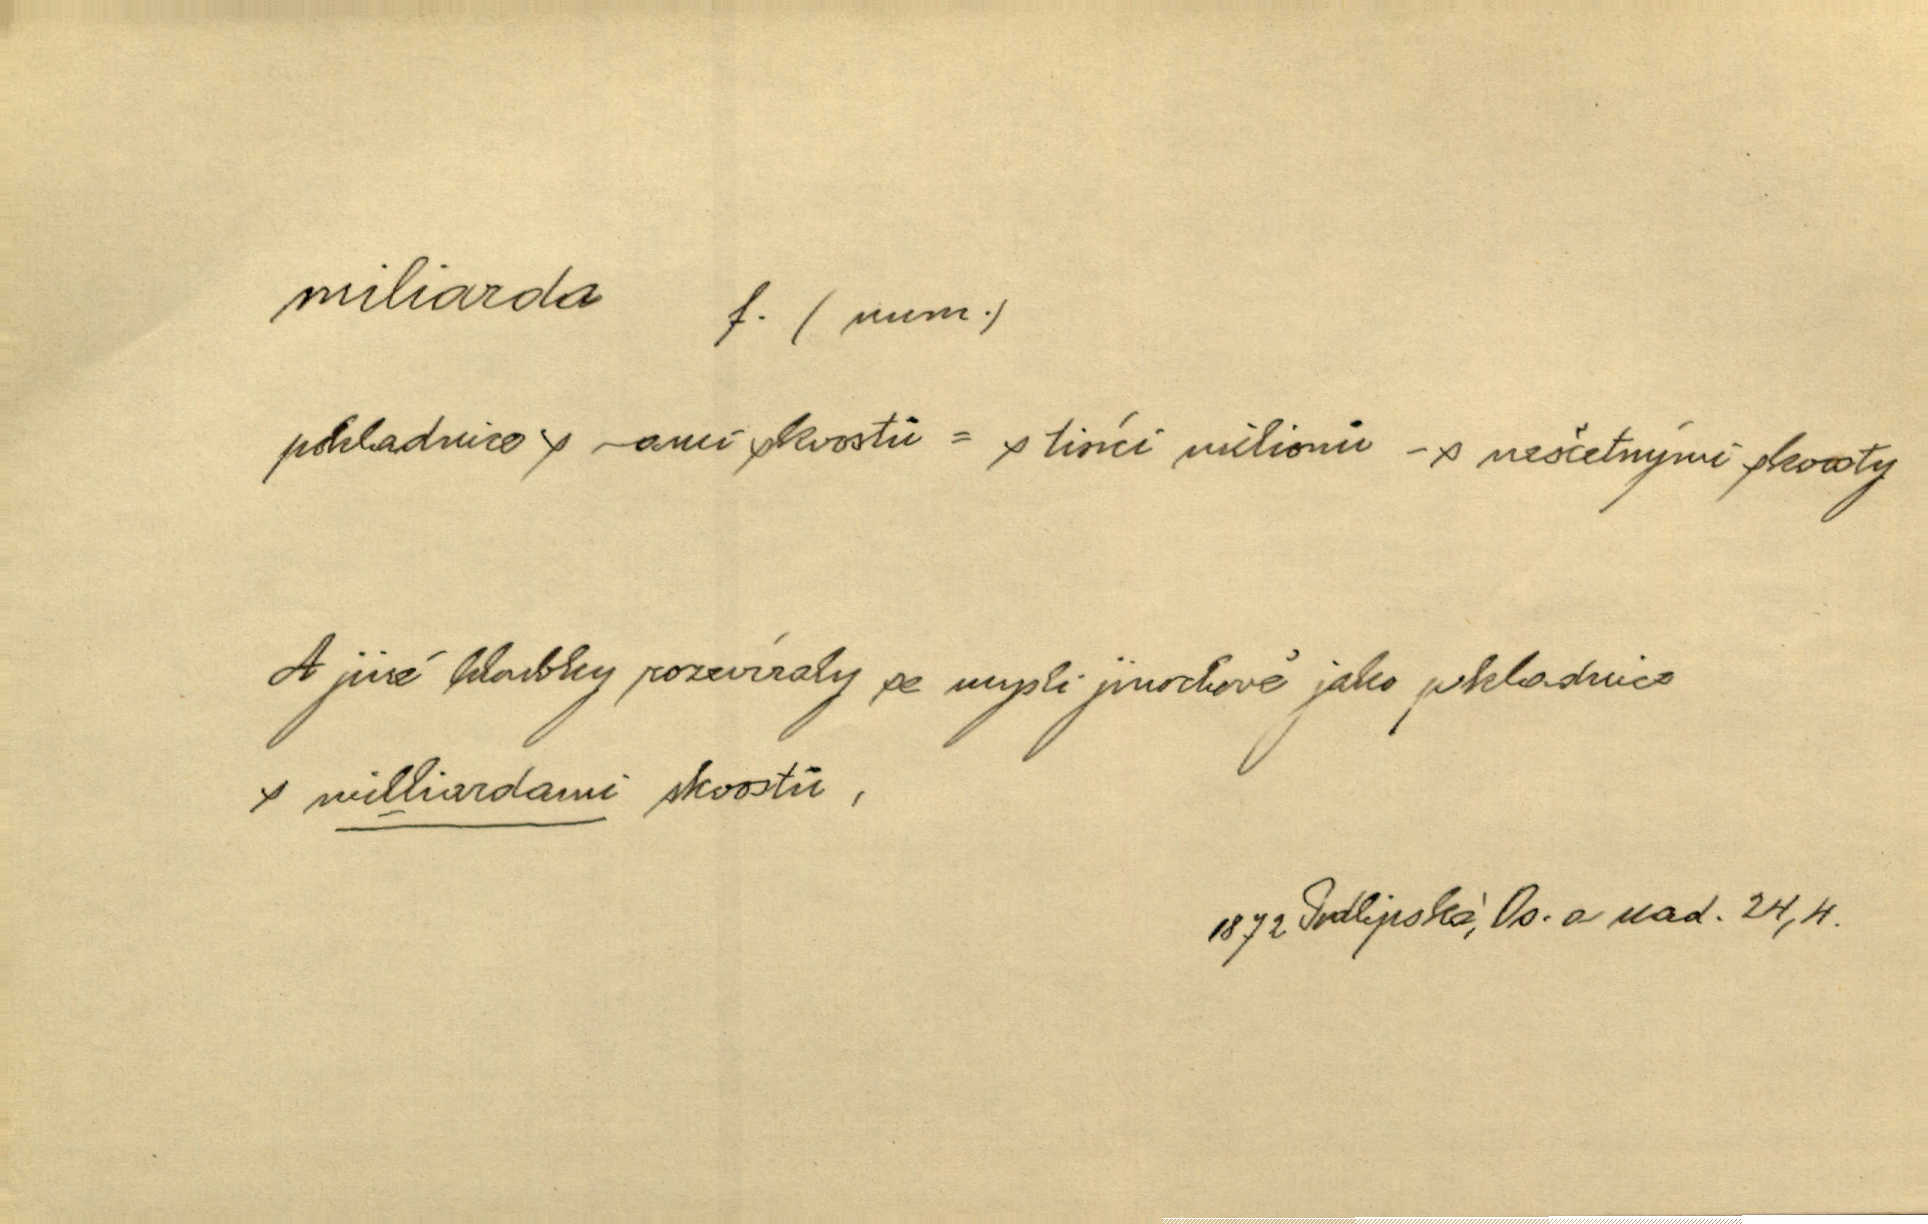 miliarda f. (num.)
pokladnice s ~ami skvostů = s tisíci milionů - s nesčetnými skvosty
A jiné hloubky rozevíraly se mysli jinochově jako pokladnice
s milliardami skvostů,
1872 Podlipská, Os. a nad. 24, 4.